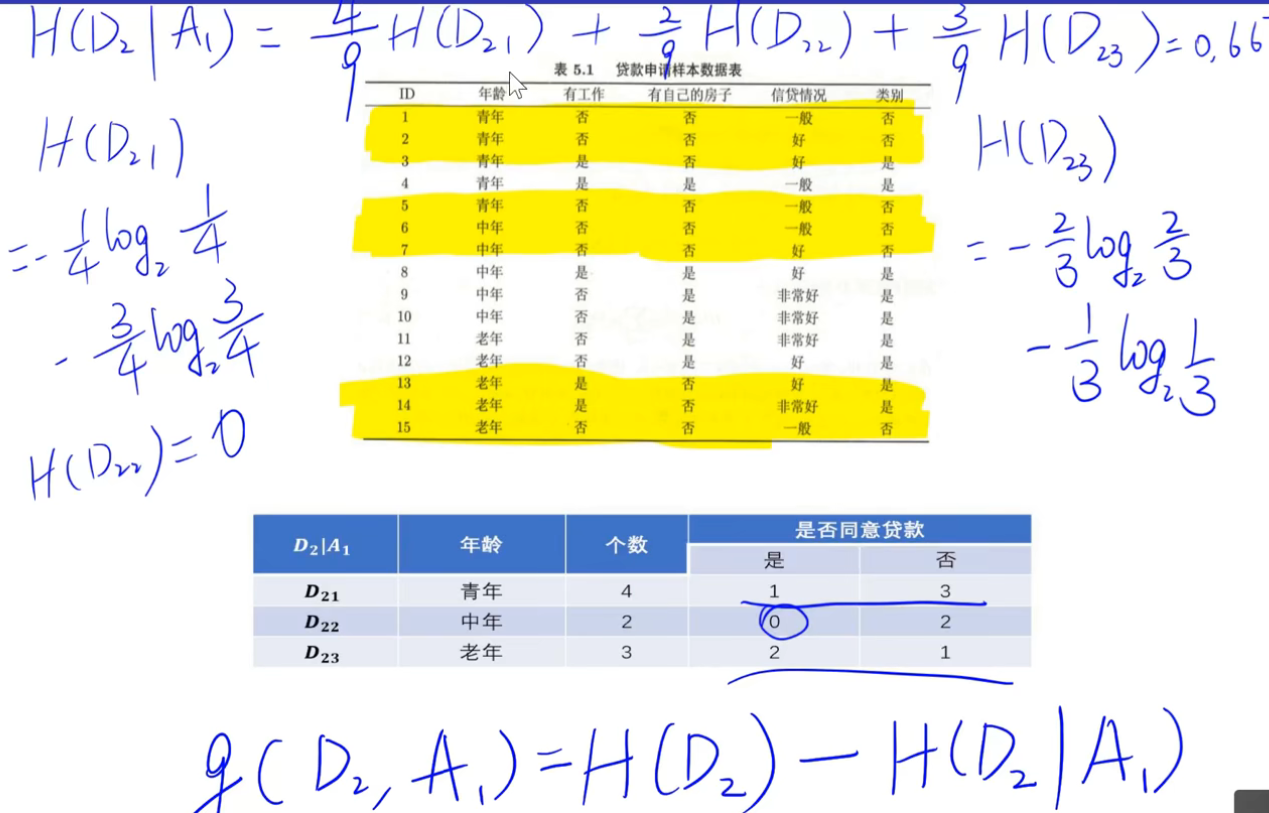 H(D₂|A₁) = 4/9 H(D₂₁) + 2/9 H(D₂₂) + 3/9 H(D₂₃) = 0.66
表 5.1 贷款申请样本数据表
ID 年龄 有工作 有自己的房子 信贷情况 类别
1 青年 否 否 一般 否
2 青年 否 否 好 否
3 青年 是 否 好 是
4 青年 是 是 一般 是
5 青年 否 否 一般 否
6 中年 否 否 一般 否
7 中年 否 否 好 否
8 中年 是 是 好 是
9 中年 否 是 非常好 是
10 中年 否 是 非常好 是
11 老年 否 是 非常好 是
12 老年 否 是 好 是
13 老年 是 否 好 是
14 老年 是 否 非常好 是
15 老年 否 否 一般 否
H(D₂₁)
= - 1/4 log₂ 1/4
- 3/4 log₂ 3/4
H(D₂₂) = 0
H(D₂₃)
= - 2/3 log₂ 2/3
- 1/3 log₂ 1/3
D₂|A₁ 年龄 个数 是否同意贷款
是 否
D₂₁ 青年 4 1 3
D₂₂ 中年 2 0 2
D₂₃ 老年 3 2 1
g(D₂, A₁) = H(D₂) - H(D₂|A₁)